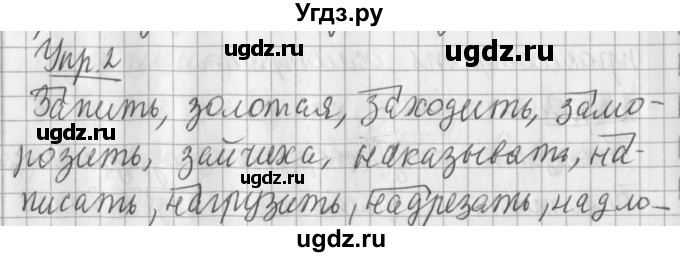 Угдз.ру
Упр. 2
ugdz.ru ugdz.ru
Запить, золотая, заходить, замо-
ugdz.ru ugdz.ru
розить, зайчиха, наказывать, на-
ugdz.ru
писать, нагрузить, надрезать, надло-
ugdz.ru ugdz.ru